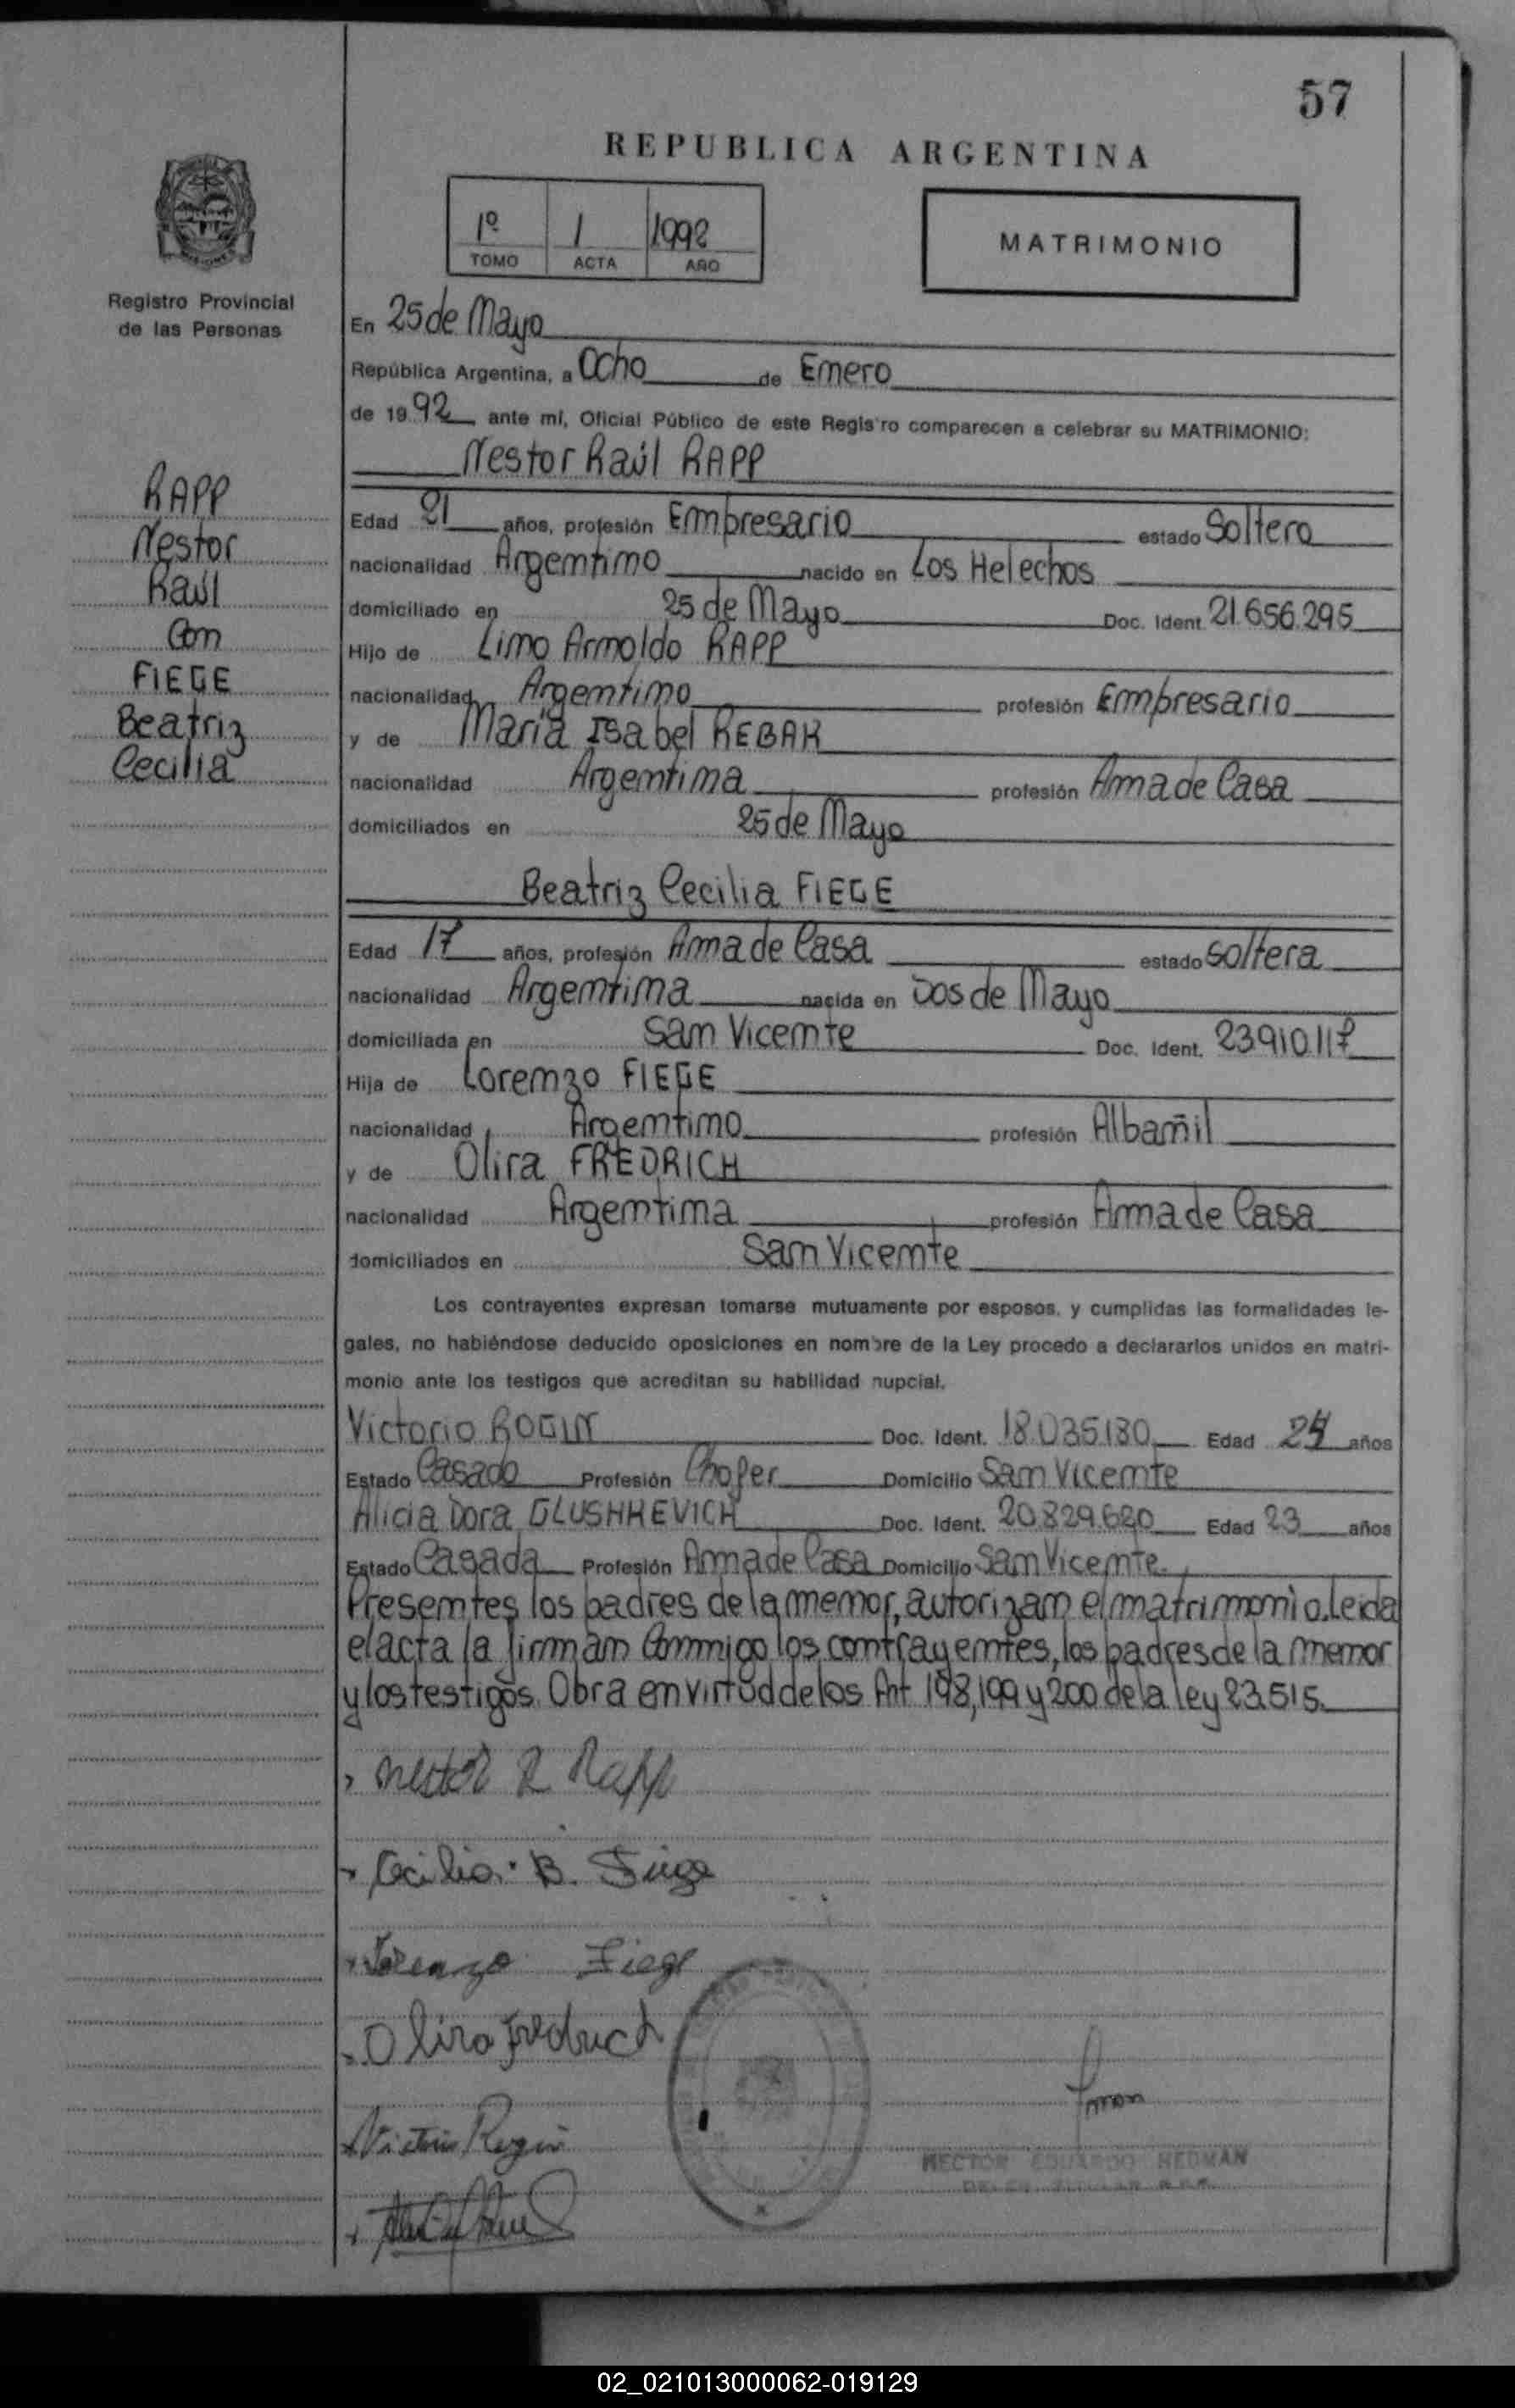 57
REPUBLICA ARGENTINA
1º 1 1992
TOMO ACTA AÑO
MATRIMONIO
Registro Provincial
de las Personas
En 25 de Mayo
República Argentina, a Ocho de Enero
de 1992 ante mí, Oficial Público de este Registro comparecen a celebrar su MATRIMONIO:
Nestor Raúl RAPP
RAPP
Nestor
Raúl
Con
FIEGE
Beatriz
Cecilia
Edad 21 años, profesión Empresario estado Soltero
nacionalidad Argentino nacido en Los Helechos
domiciliado en 25 de Mayo Doc. Ident. 21.656.295
Hijo de Lino Arnoldo RAPP
nacionalidad Argentino profesión Empresario
y de María Isabel REBAK
nacionalidad Argentina profesión Ama de Casa
domiciliados en 25 de Mayo
Beatriz Cecilia FIEGE
Edad 17 años, profesión Ama de Casa estado Soltera
nacionalidad Argentina nacida en Dos de Mayo
domiciliada en San Vicente Doc. Ident. 23.910.117
Hija de Lorenzo FIEGE
nacionalidad Argentino profesión Albañil
y de Olira FREDRICH
nacionalidad Argentina profesión Ama de Casa
domiciliados en San Vicente
Los contrayentes expresan tomarse mutuamente por esposos, y cumplidas las formalidades le-
gales, no habiéndose deducido oposiciones en nombre de la Ley procedo a declararlos unidos en matri-
monio ante los testigos que acreditan su habilidad nupcial.
Victorio ROGIN Doc. Ident. 18.035.180 Edad 24 años
Estado Casado Profesión Chofer Domicilio San Vicente
Alicia Dora GLUSHKEVICH Doc. Ident. 20.829.620 Edad 23 años
Estado Casada Profesión Ama de Casa Domicilio San Vicente.
Presentes los padres de la menor, autorizan el matrimonio. Leida
el acta la firman Conmigo los contrayentes, los padres de la menor
y los testigos. Obra en virtud de los Art 198, 199 y 200 de la ley 23.515.
Nestor R Rapp
Cecilia B. Fiege
Lorenzo Fiege
Olira Fredrich
Victorio Rogin
HECTOR EDUARDO REDMAN
02_021013000062-019129